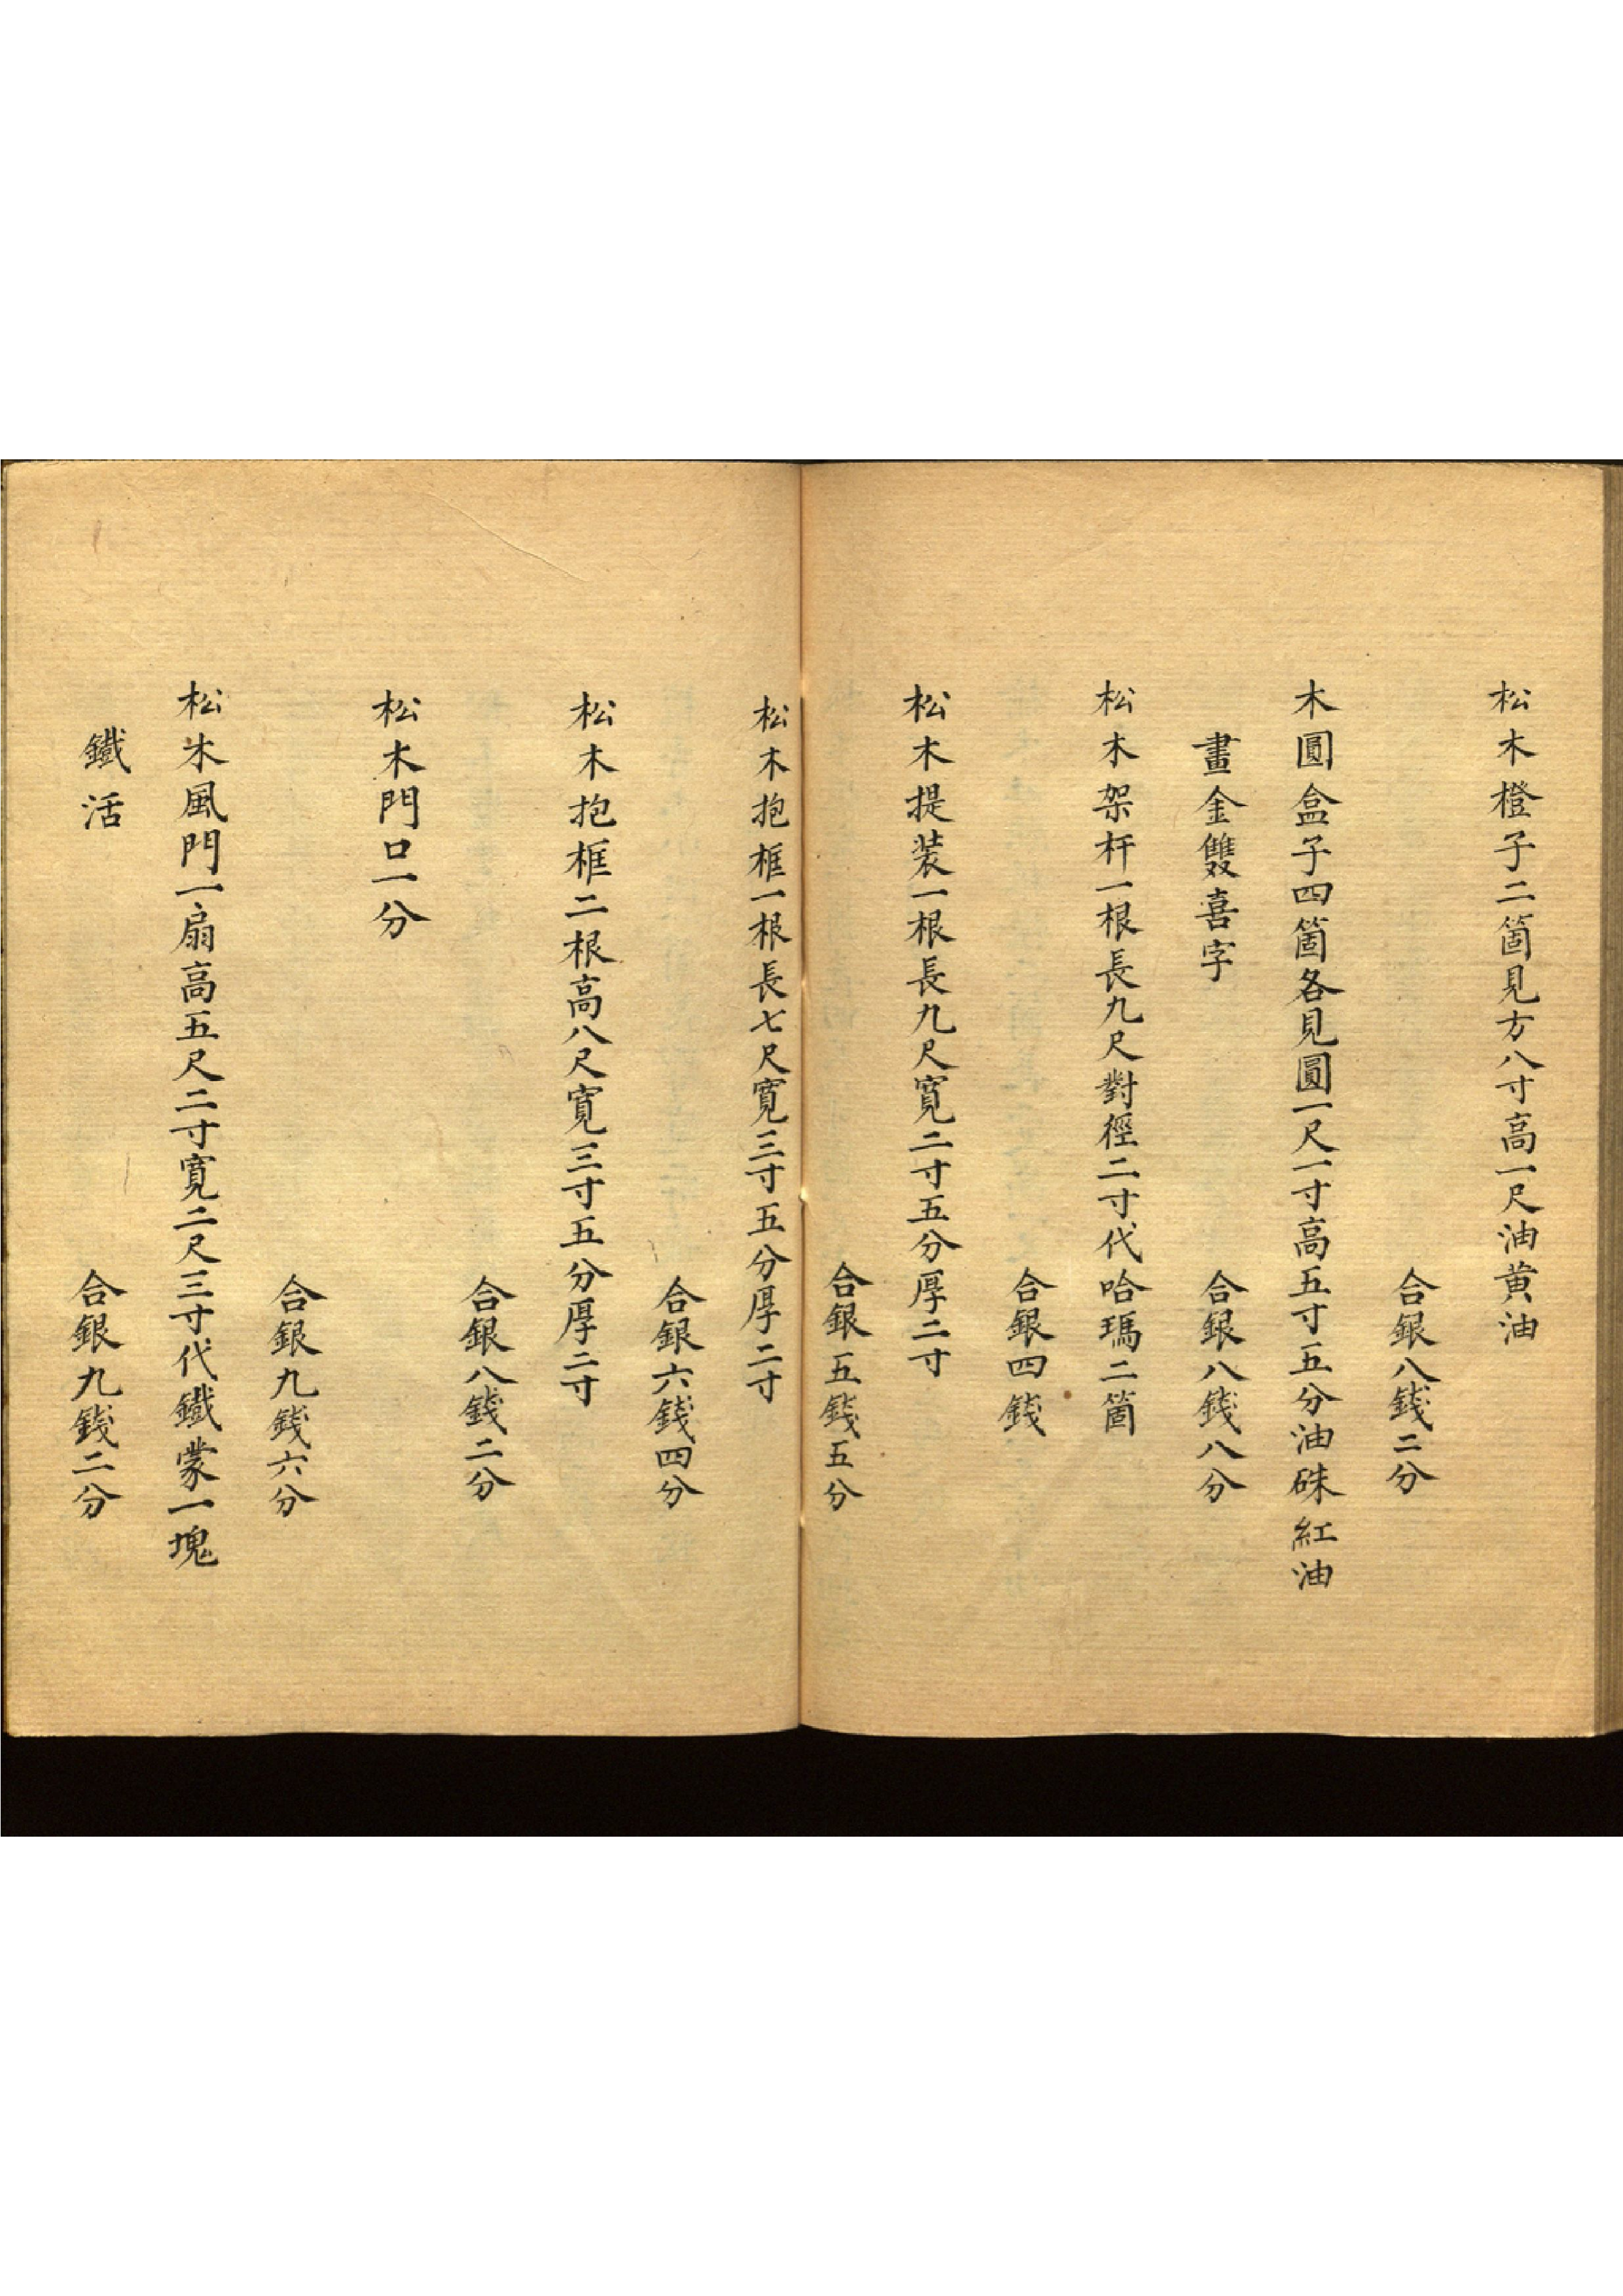 松木橙子二箇見方八寸高一尺油黄油
合銀八錢二分
木圓盒子四箇各見圓一尺一寸高五寸五分油硃紅油
畫金雙喜字
合銀八錢八分
松木架杆一根長九尺對徑二寸代哈瑪二箇
合銀四錢
松木提装一根長九尺寬二寸五分厚二寸
合銀五錢五分
松木抱框一根長七尺寬三寸五分厚二寸
合銀六錢四分
松木抱框二根高八尺寬三寸五分厚二寸
合銀八錢二分
松木門口一分
合銀九錢六分
松木風門一扇高五尺二寸寬二尺三寸代鐵蒙一塊
鐵活
合銀九錢二分